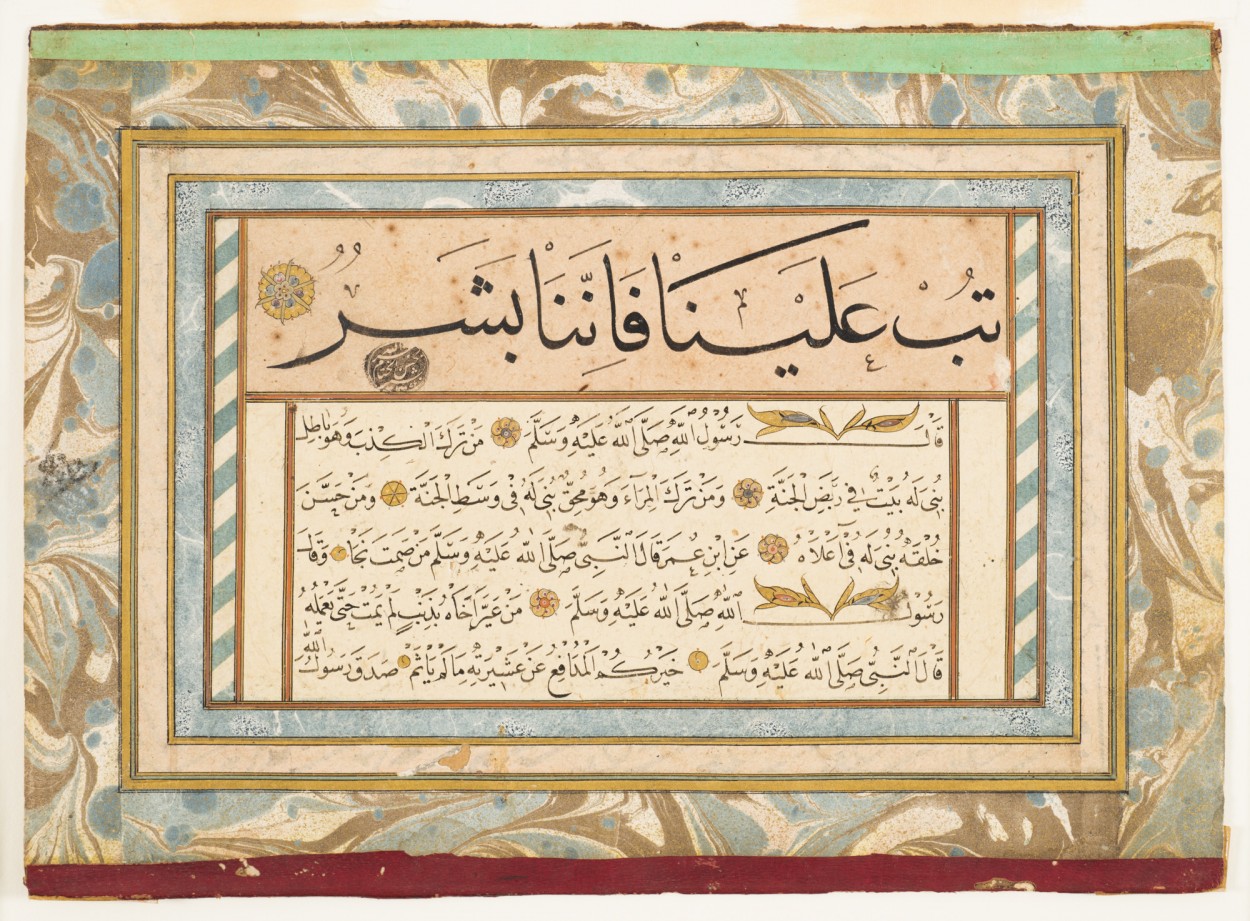 تُبْ عَلَيْنَا فَإِنَّنَا بَشَرُ
قَالَ رَسُولُ اللّٰهِ صَلَّى اللّٰهُ عَلَيْهِ وَسَلَّمَ مَنْ تَرَكَ الْكَذِبَ وَهُوَ بَاطِلٌ
بُنِىَ لَهُ بَيْتٌ فِى رَبَضِ الْجَنَّةِ وَمَنْ تَرَكَ الْمِرَاءَ وَهُوَ مُحِقٌّ بُنِىَ لَهُ فِى وَسَطِ الْجَنَّةِ وَمَنْ حَسَّنَ
خُلُقَهُ بُنِىَ لَهُ فِى أَعْلَاهُ عَنِ ابْنِ عُمَرَ قَالَ النَّبِىُّ صَلَّى اللّٰهُ عَلَيْهِ وَسَلَّمَ مَنْ صَمَتَ نَجَا وَقَالَ
رَسُولُ اللّٰهِ صَلَّى اللّٰهُ عَلَيْهِ وَسَلَّمَ مَنْ عَيَّرَ أَخَاهُ بِذَنْبٍ لَمْ يَمُتْ حَتَّى يَعْمَلَهُ
قَالَ النَّبِىُّ صَلَّى اللّٰهُ عَلَيْهِ وَسَلَّمَ خَيْرُكُمُ الْمُدَافِعُ عَنْ عَشِيرَتِهِ مَا لَمْ يَأْثَمْ صَدَقَ رَسُولُ اللّٰهِ